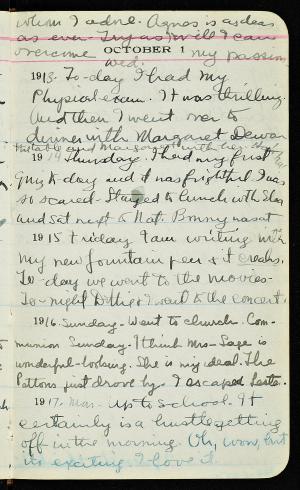 whom I adore. Agnes is as dear
as ever. Try as I will I can
overcome OCTOBER 1 my passion
wed.
1913. To-day I had my
Physical exam. It was thrilling.
And then I went over to
dinner with Margaret Dewar
1914 Thursday. I had my first
quiz to-day and it was frightful. I was
so scared. Stayed to lunch with
and sat next to Nat.
1915 Friday I am writing with
my new fountain pen & it leaks.
To-day we went to the movies-
To-night & I went to the concert.
1916. Sunday- Went to church. Com-
munion Sunday. I think Mrs- Sage is
wonderful-looking. She is my ideal. The
Pattons just drove by. I escaped
1917. Mon- Up to School. It
certainly is a hustle getting
off in the morning. Oh, wow, but
its exciting. I love it